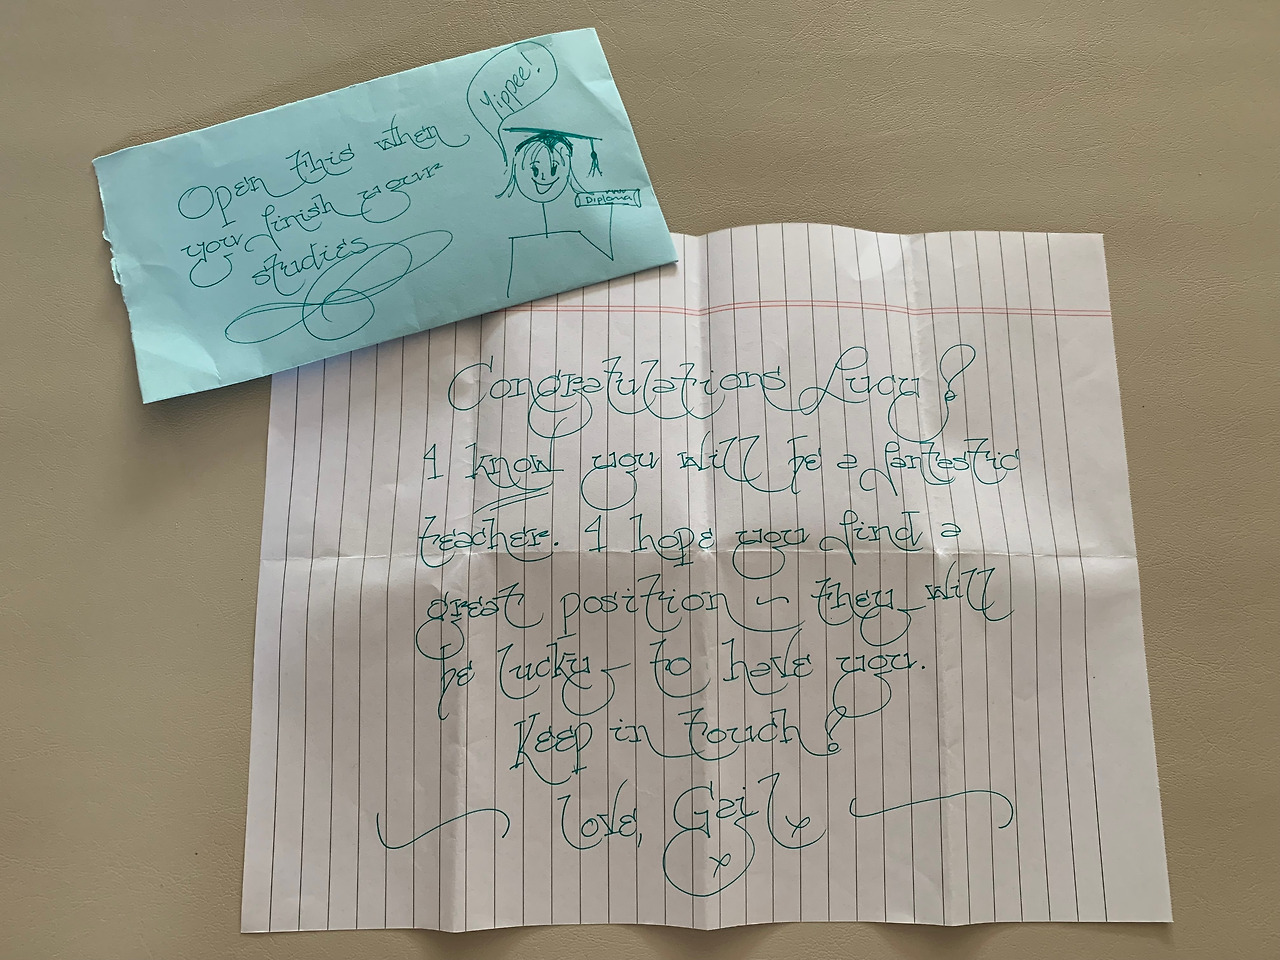 Open this when
you finish your
studies
Yippee!
Diploma
Congratulations Lucy!
I know you will be a fantastic
teacher. I hope you find a
great position - they will
be lucky to have you.
Keep in touch!
Love, Gail x
x